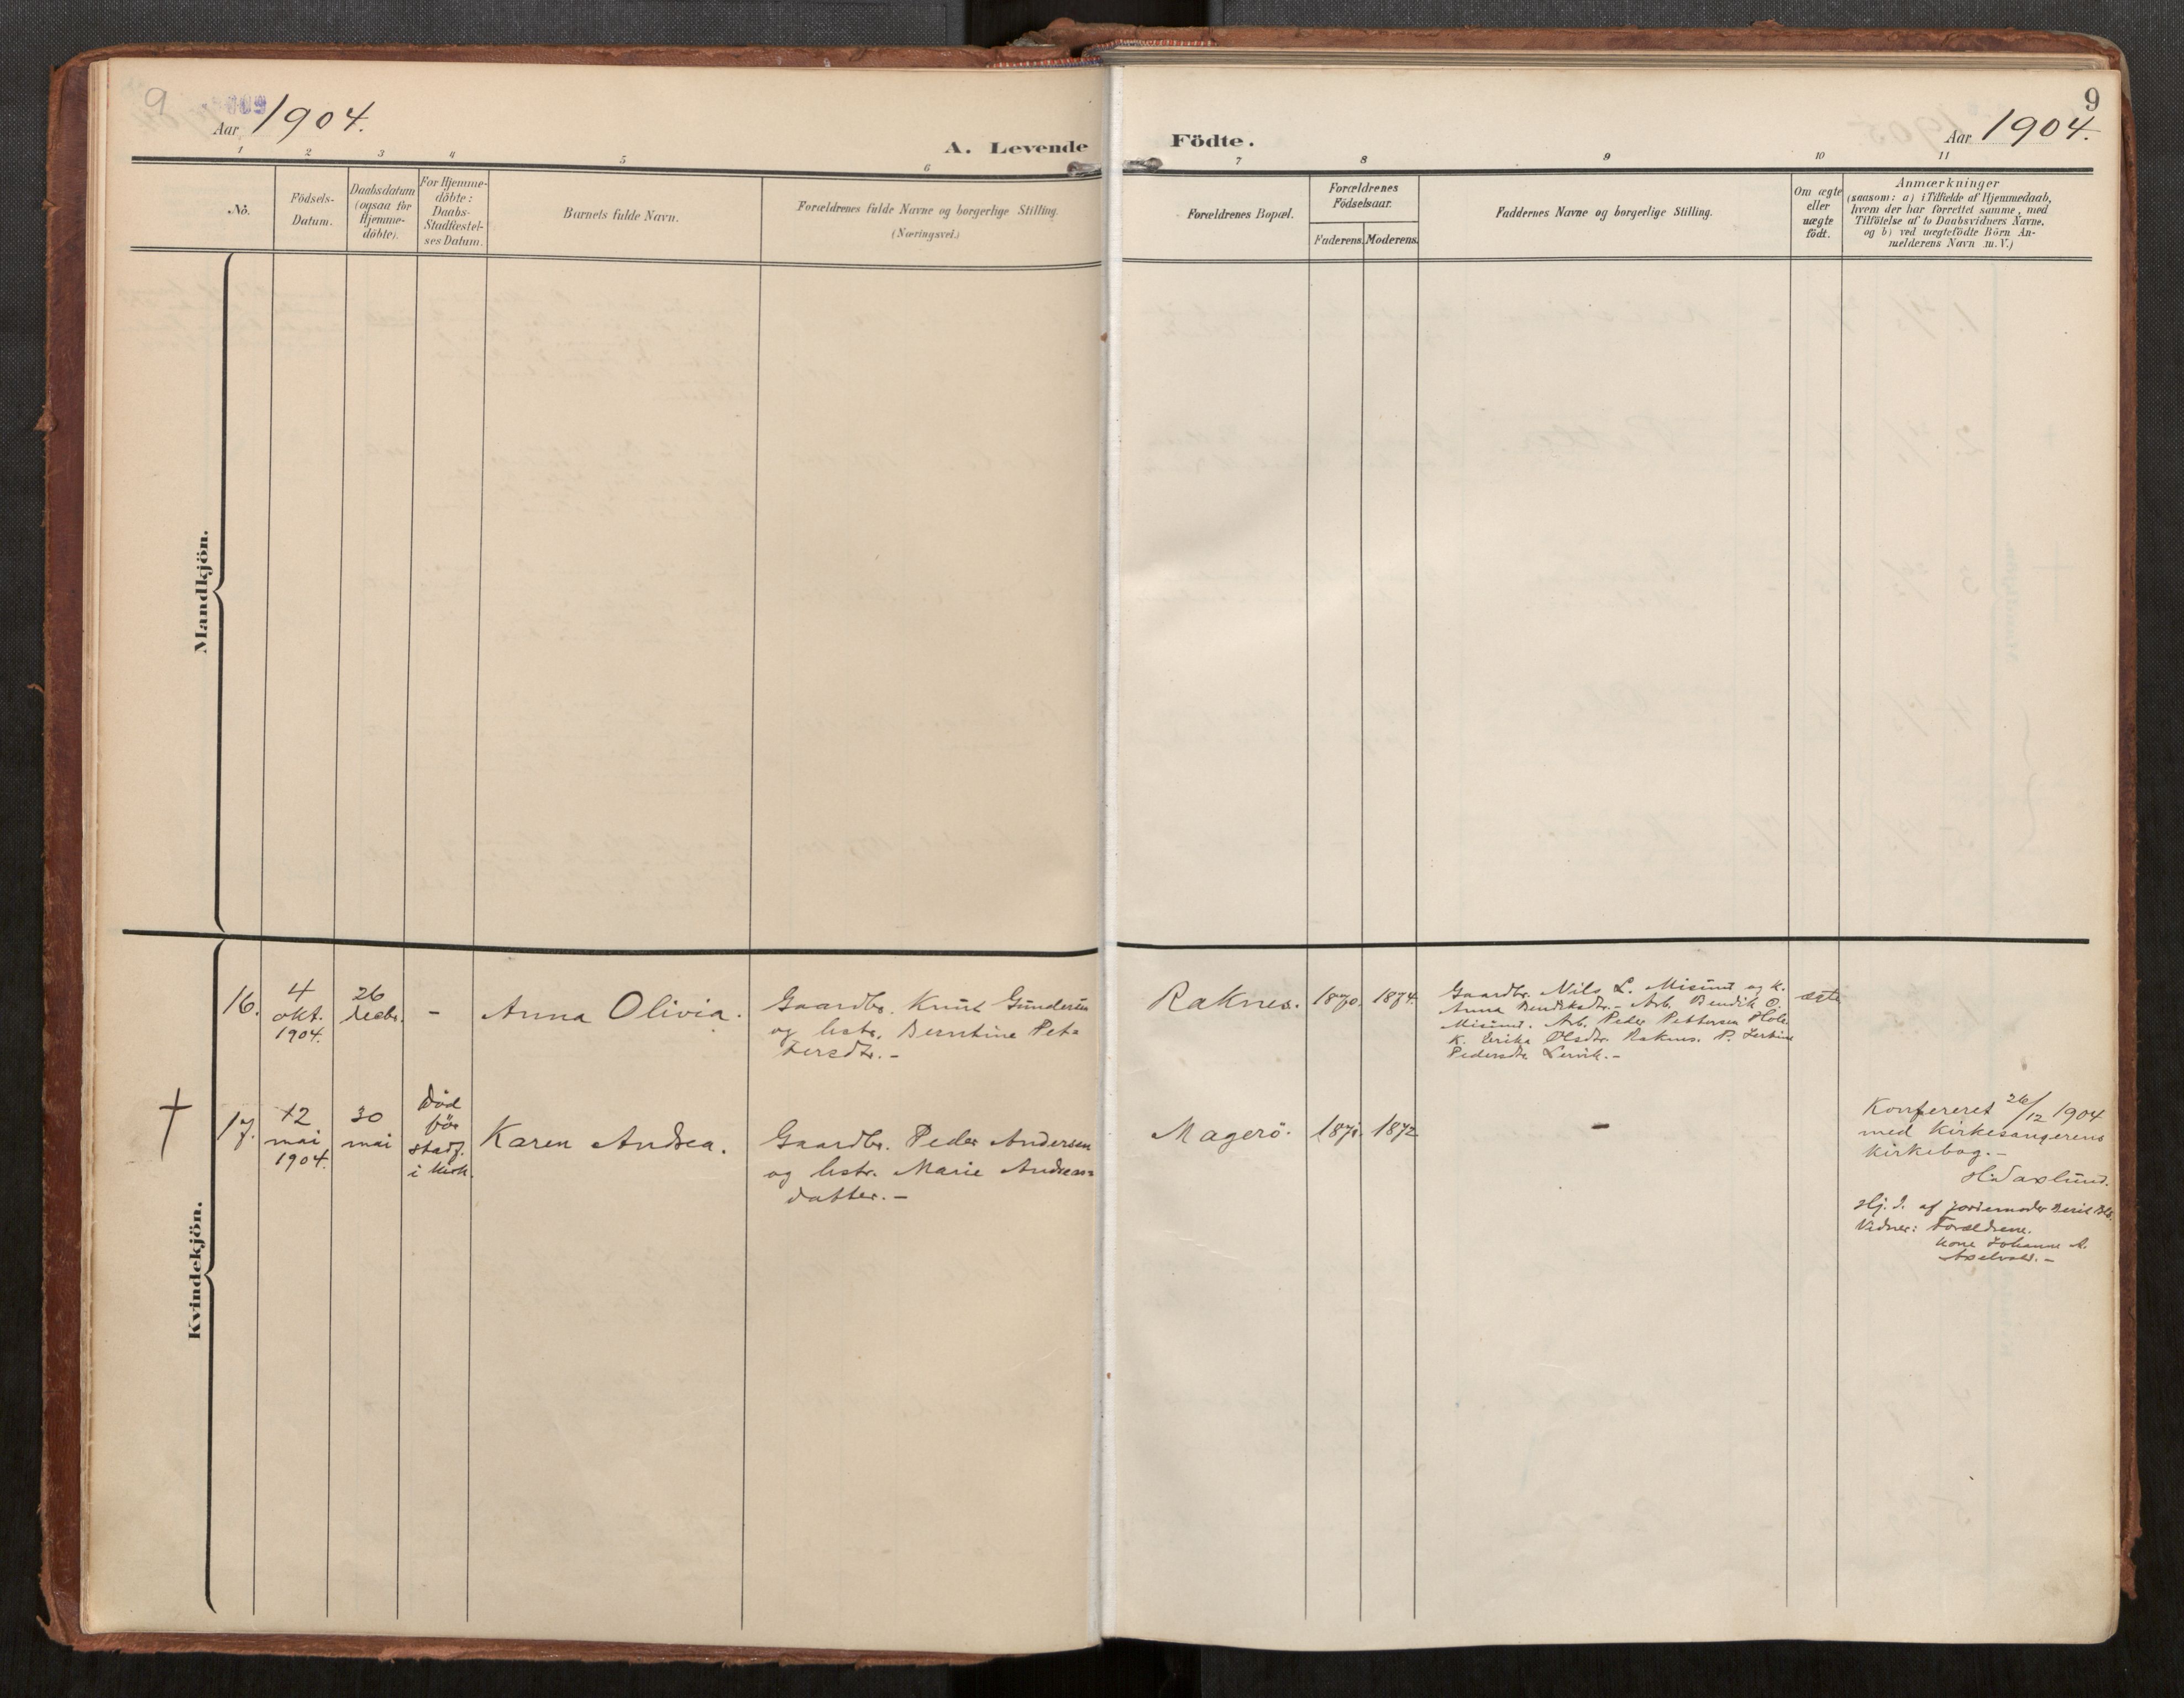 9
Aar 1904.
A. Levende Födte.
9
Aar 1904.
1 2 3 4 5 6 7 8 9 10 11
No.
Födsels-
Datum.
Daabsdatum
(ogsaa for
Hjemme-
döbte).
For Hjemme-
döbte:
Daabs-
Stadfæstel-
ses Datum.
Barnets fulde Navn.
Forældrenes fulde Navne og borgerlige Stilling.
(Næringsvei.)
Forældrenes Bopæl.
Forældrenes
Födselsaar.
Faderens. Moderens.
Faddernes Navne og borgerlige Stilling.
Om ægte
eller
uægte
födt.
Anmærkninger
(saasom: a) i Tilfælde af Hjemmedaab,
hvem der har forrettet samme, med
Tilföielse af to Daabsvidners Navne,
og b) ved uægtefödte Börn An-
melderens Navn m. V.)
Mandkjön.
Kvindekjön.
16.
4
okt.
1904.
26
decbr.
-
Anna Olivia.
Gaardbr. Knut Gundersen
og hstr. Berntine Pet=
tersdtr. -
Raknes.
1870. 1874.
Gaardbr. Nils L. Misund og k.
Anna Bendiksdtr. - Arb. Bendik O.
Misund. Arb. Peder Pettersen Hole
K. Erika Olsdtr. Raknes. P.
Pedersdtr Lervik. -
ægte
†
17.
12
mai
1904.
30
mai
Död
för
stadf.
i kirk.
Karen Andrea.
Gaardbr. Peder Andersen
og hstr. Marie Andreas=
datter. -
Magerö.
1871. 1872
-
Konfereret 26/12 1904
med Kirkesangerens
Kirkebog. -
Hj. d. af jordemoder Berit
Vidner: Forældrene.
Kone Johanne A.